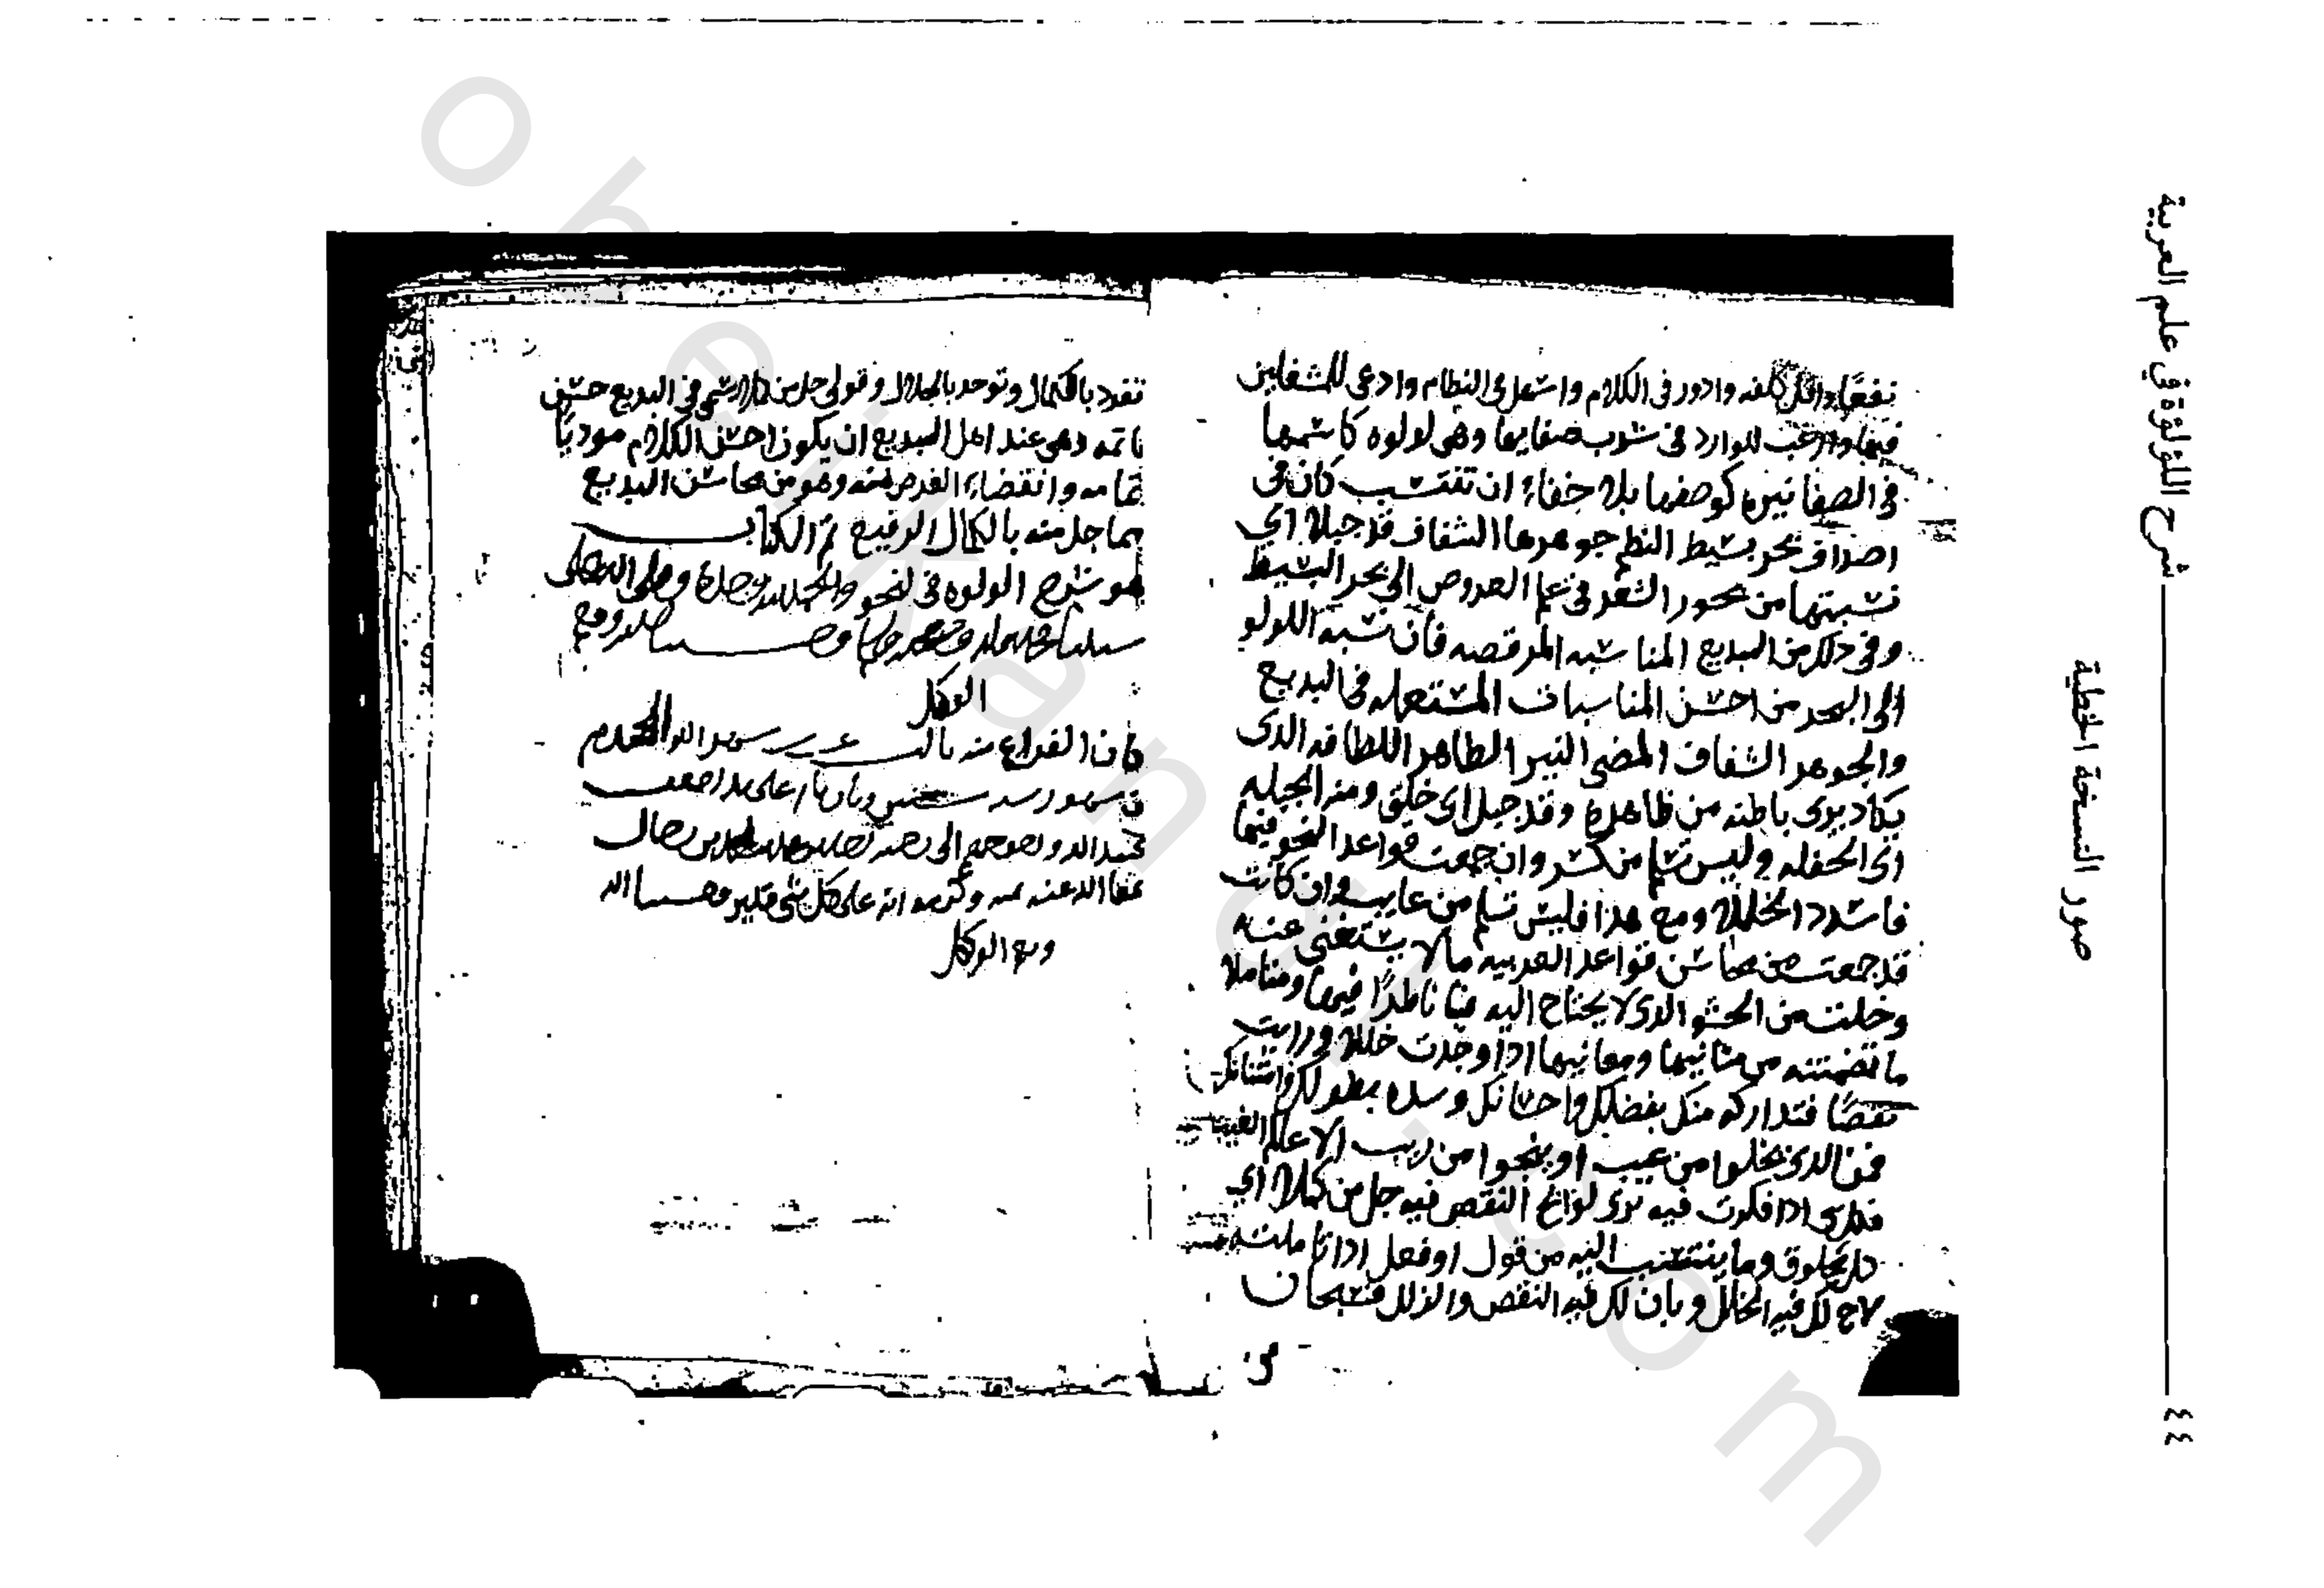 شرح اللؤلؤة في علم العربية
٤٤
صور النسخة الخطية
نفعًا واقل كلفه وادور في الكلام واسهل في النظام وادعى للمشغلين
فيها وارغب للوارد في شرب صفايها وهي لولوه كاسمها
في الصفا نيره كوصفها بلا خفاء ان تنتسب كان في
اصداف بحر بسيط النظم جوهرها الشفاف قد جبلا اي
نسبتها من بحور الشعر في علم العروض الى بحر البسيط
وفي ذلك من البديع المناسبه المرقصه فان نسبة اللولو
الى البحر من احسن المناسبات المستعمله في البديع
والجوهر الشفاف المضي النير الطاهر اللطافه الذي
يكاد يرى باطنه من ظاهره وقد جبل اي خلق ومنه الجبله
اي الخلقه وليس تسلم من كسر وان جمعت قواعد النحو فيها
فاسدد الخللا ومع هذا فليس تسلم من عايب وان كانت
قد جمعت من محاسن قواعد العربيه مالا يستغنى عنه
وخلت من الحشو الذي لا يحتاج اليه فيا ناظرًا فيها ومتاملا
ما تضمنته من مثانيها ومعانيها اذا وجدت خللا ورايت
نقصًا فتداركه منك بفضلك واحسانك وسده بطولك وامتنانك
فمن الذي يخلوا من عيب او ينجوا من ريب الا علام الغيوب
فكل شي اذا فكرت فيه ترى لوايح النقص فيه جل من كملا اي
كل مخلوق وما ينتسب اليه من قول او فعل اذا تاملته
لاح لك فيه الخلل وبان لك فيه النقص والزلل فسبحان
من
تفرد بالكمال وتوحد بالجلال وقولي جل من كملا رسمي في البديع حسن
خاتمه وهي عند اهل البديع ان يكون احسن الكلام موديًا
تمامه وانقضاء الغرض منه وهو من محاسن البديع
بما جل منه بالكمال الرفيع تم الكتاب
هو شرح الولوه في النحو والحمد لله وحده وصلى الله على
سيدنا محمد واله وصحبه وسلم وحسبنا الله ونعم
الوكيل
كان الفراغ منه شهر الله المحرم
سنة وثمان على يد
عبيد الله الى
عفا الله عنه بمنه وكرمه انه على كل شي قدير وحسبنا الله
ونعم الوكيل